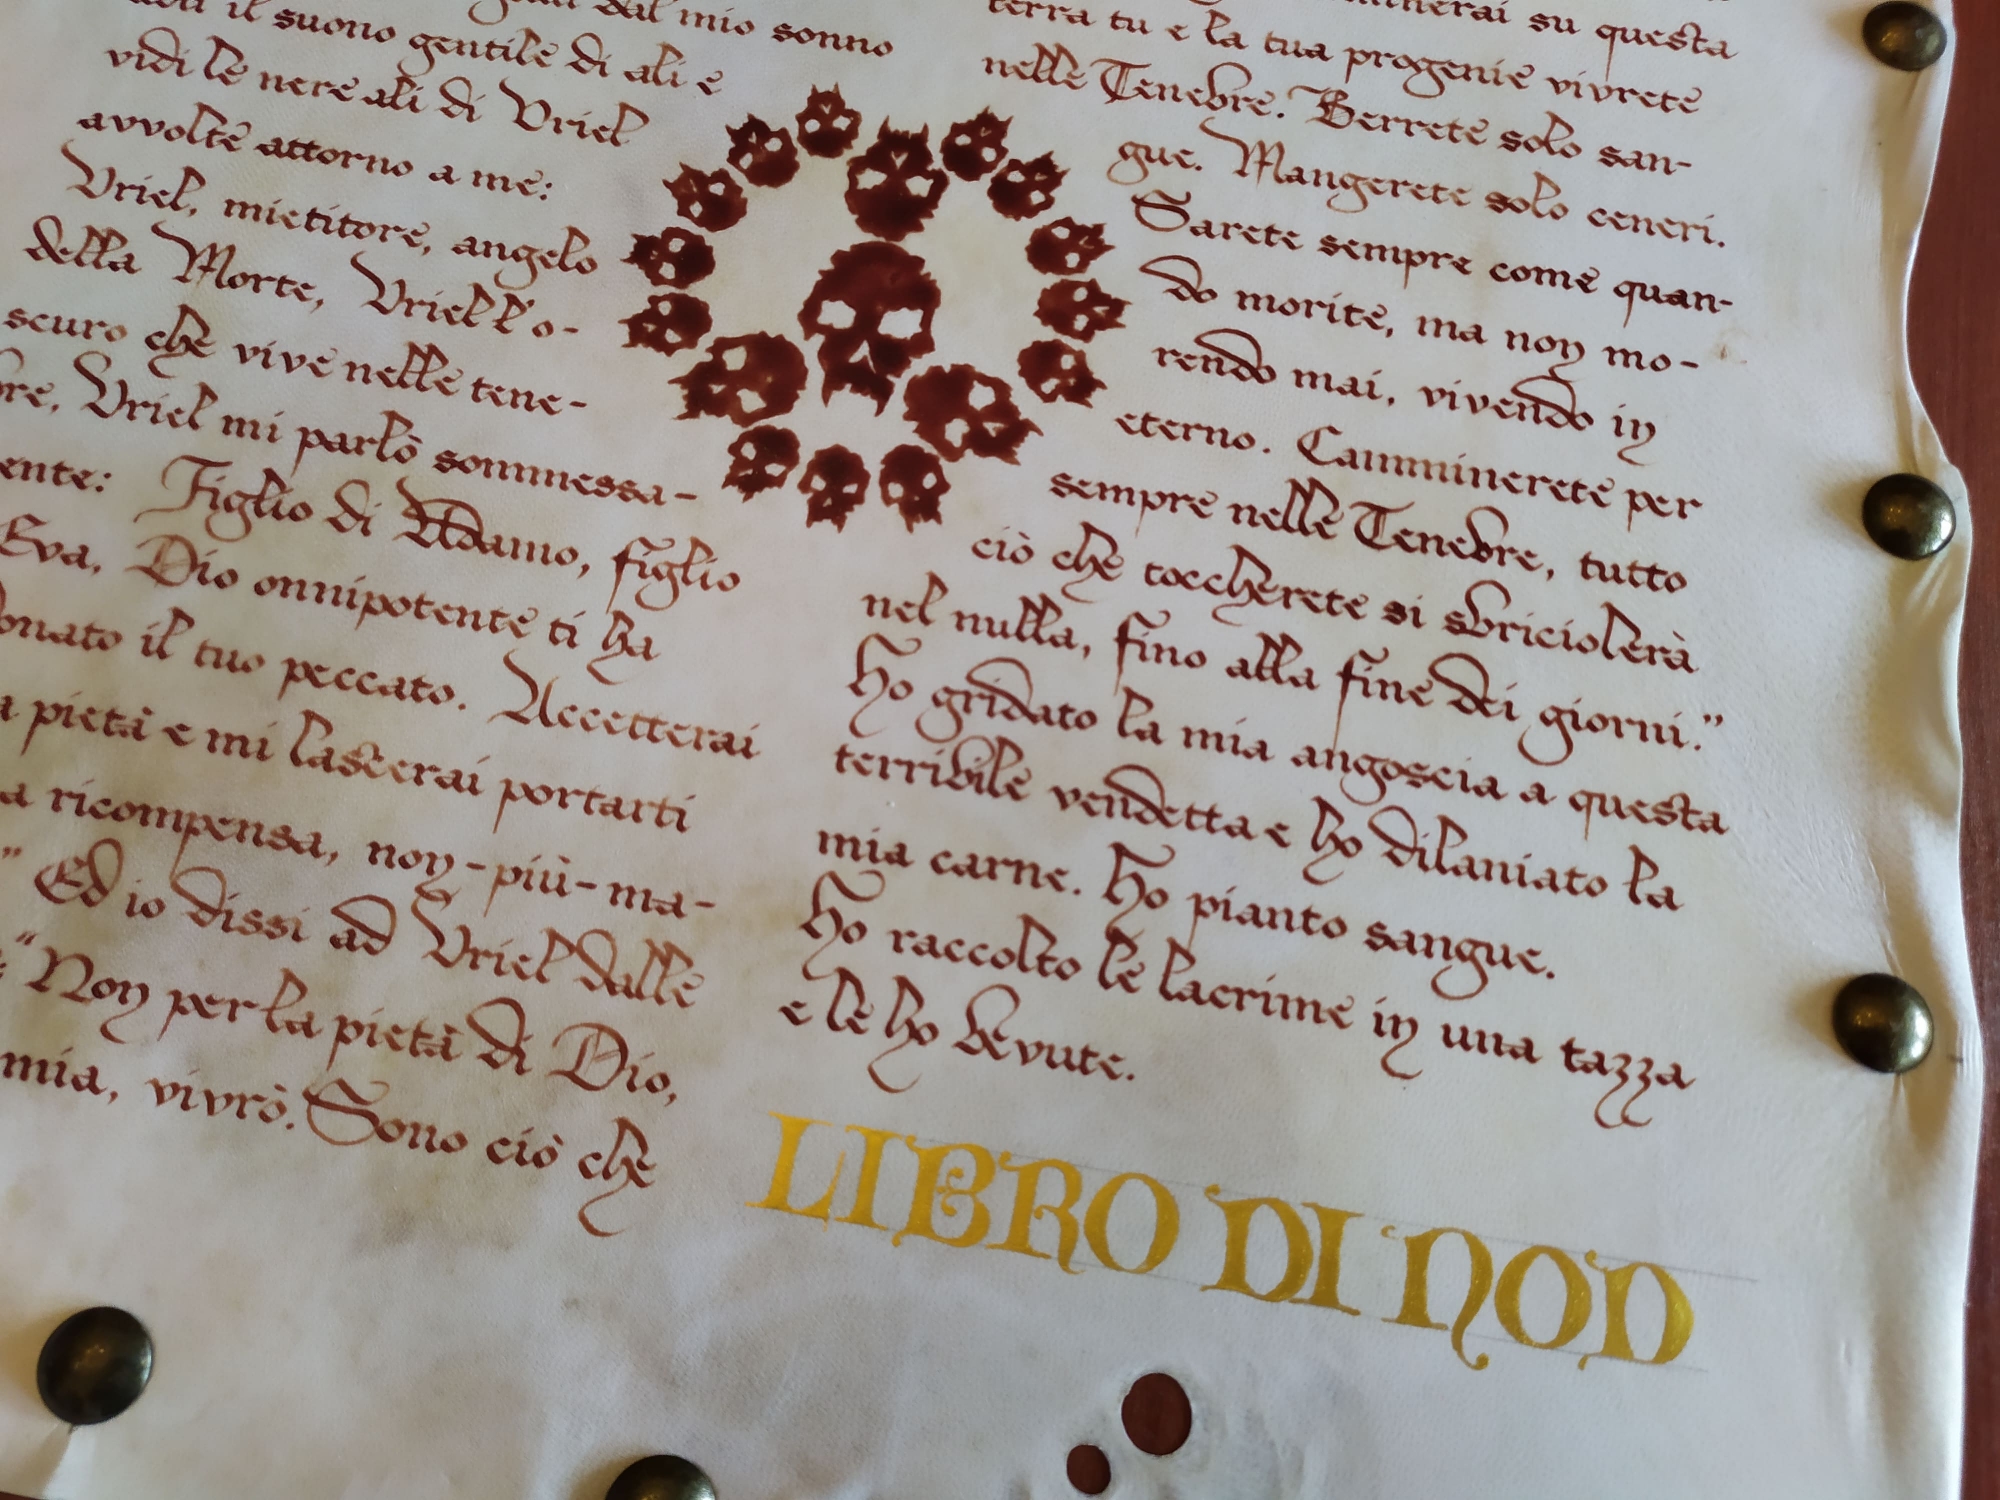 dal mio sonno
il suono gentile di ali e
vidi le nere ali di Uriel
avvolte attorno a me:
Uriel, mietitore, angelo
della Morte, Uriel l'o-
scuro che vive nelle tene-
bre, Uriel mi parlò sommessa-
ente: Figlio di Adamo, figlio
Eva, Dio onnipotente ti ha
onato il tuo peccato. Accetterai
a pietà e mi lascerai portarti
a ricompensa, non-più-ma-
" Ed io dissi ad Uriel dalle
: "Non per la pietà di Dio,
mia, vivrò. Sono ciò che
minerai su questa
terra tu e la tua progenie vivrete
nelle Tenebre. Berrete solo san-
gue. Mangerete solo ceneri.
Sarete sempre come quan-
do morite, ma non mo-
rendo mai, vivendo in
eterno. Camminerete per
sempre nelle Tenebre, tutto
ciò che toccherete si sbriciolerà
nel nulla, fino alla fine dei giorni."
Ho gridato la mia angoscia a questa
terribile vendetta e ho dilaniato la
mia carne. Ho pianto sangue.
Ho raccolto le lacrime in una tazza
e le ho bevute.
LIBRO DI NOD